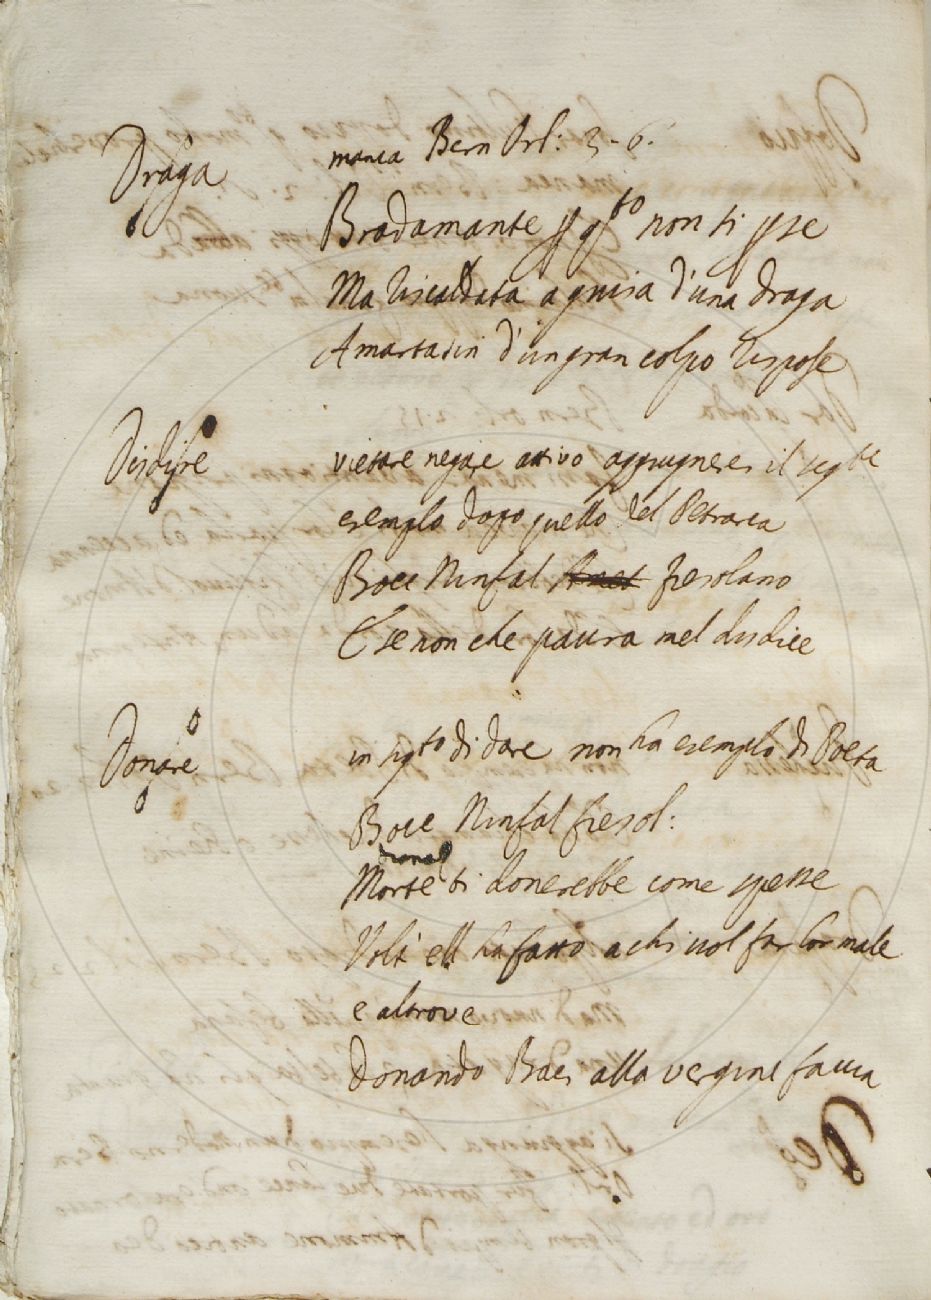 Draga manca Bern Orl: 3. 6.
Bradamante p q.to non si pse
Ma riscaldata a guisa d'una draga
A martasin d'un gran colpo rispose
Disdire vietare negare attivo aggiugnere il seg.te
esemplo dopo quello del Petrarca
Bocc Ninfal Amet fiesolano
E se non che paura mel disdice
Donare in sig.to di dare non ha esemplo di Poeta
Bocc Ninfal fiesol:
Morte ti donerebbe come spesse
Volt ell ha fatto a chi vol far lor male
e altrove
Donando Baci alla vergine faccia